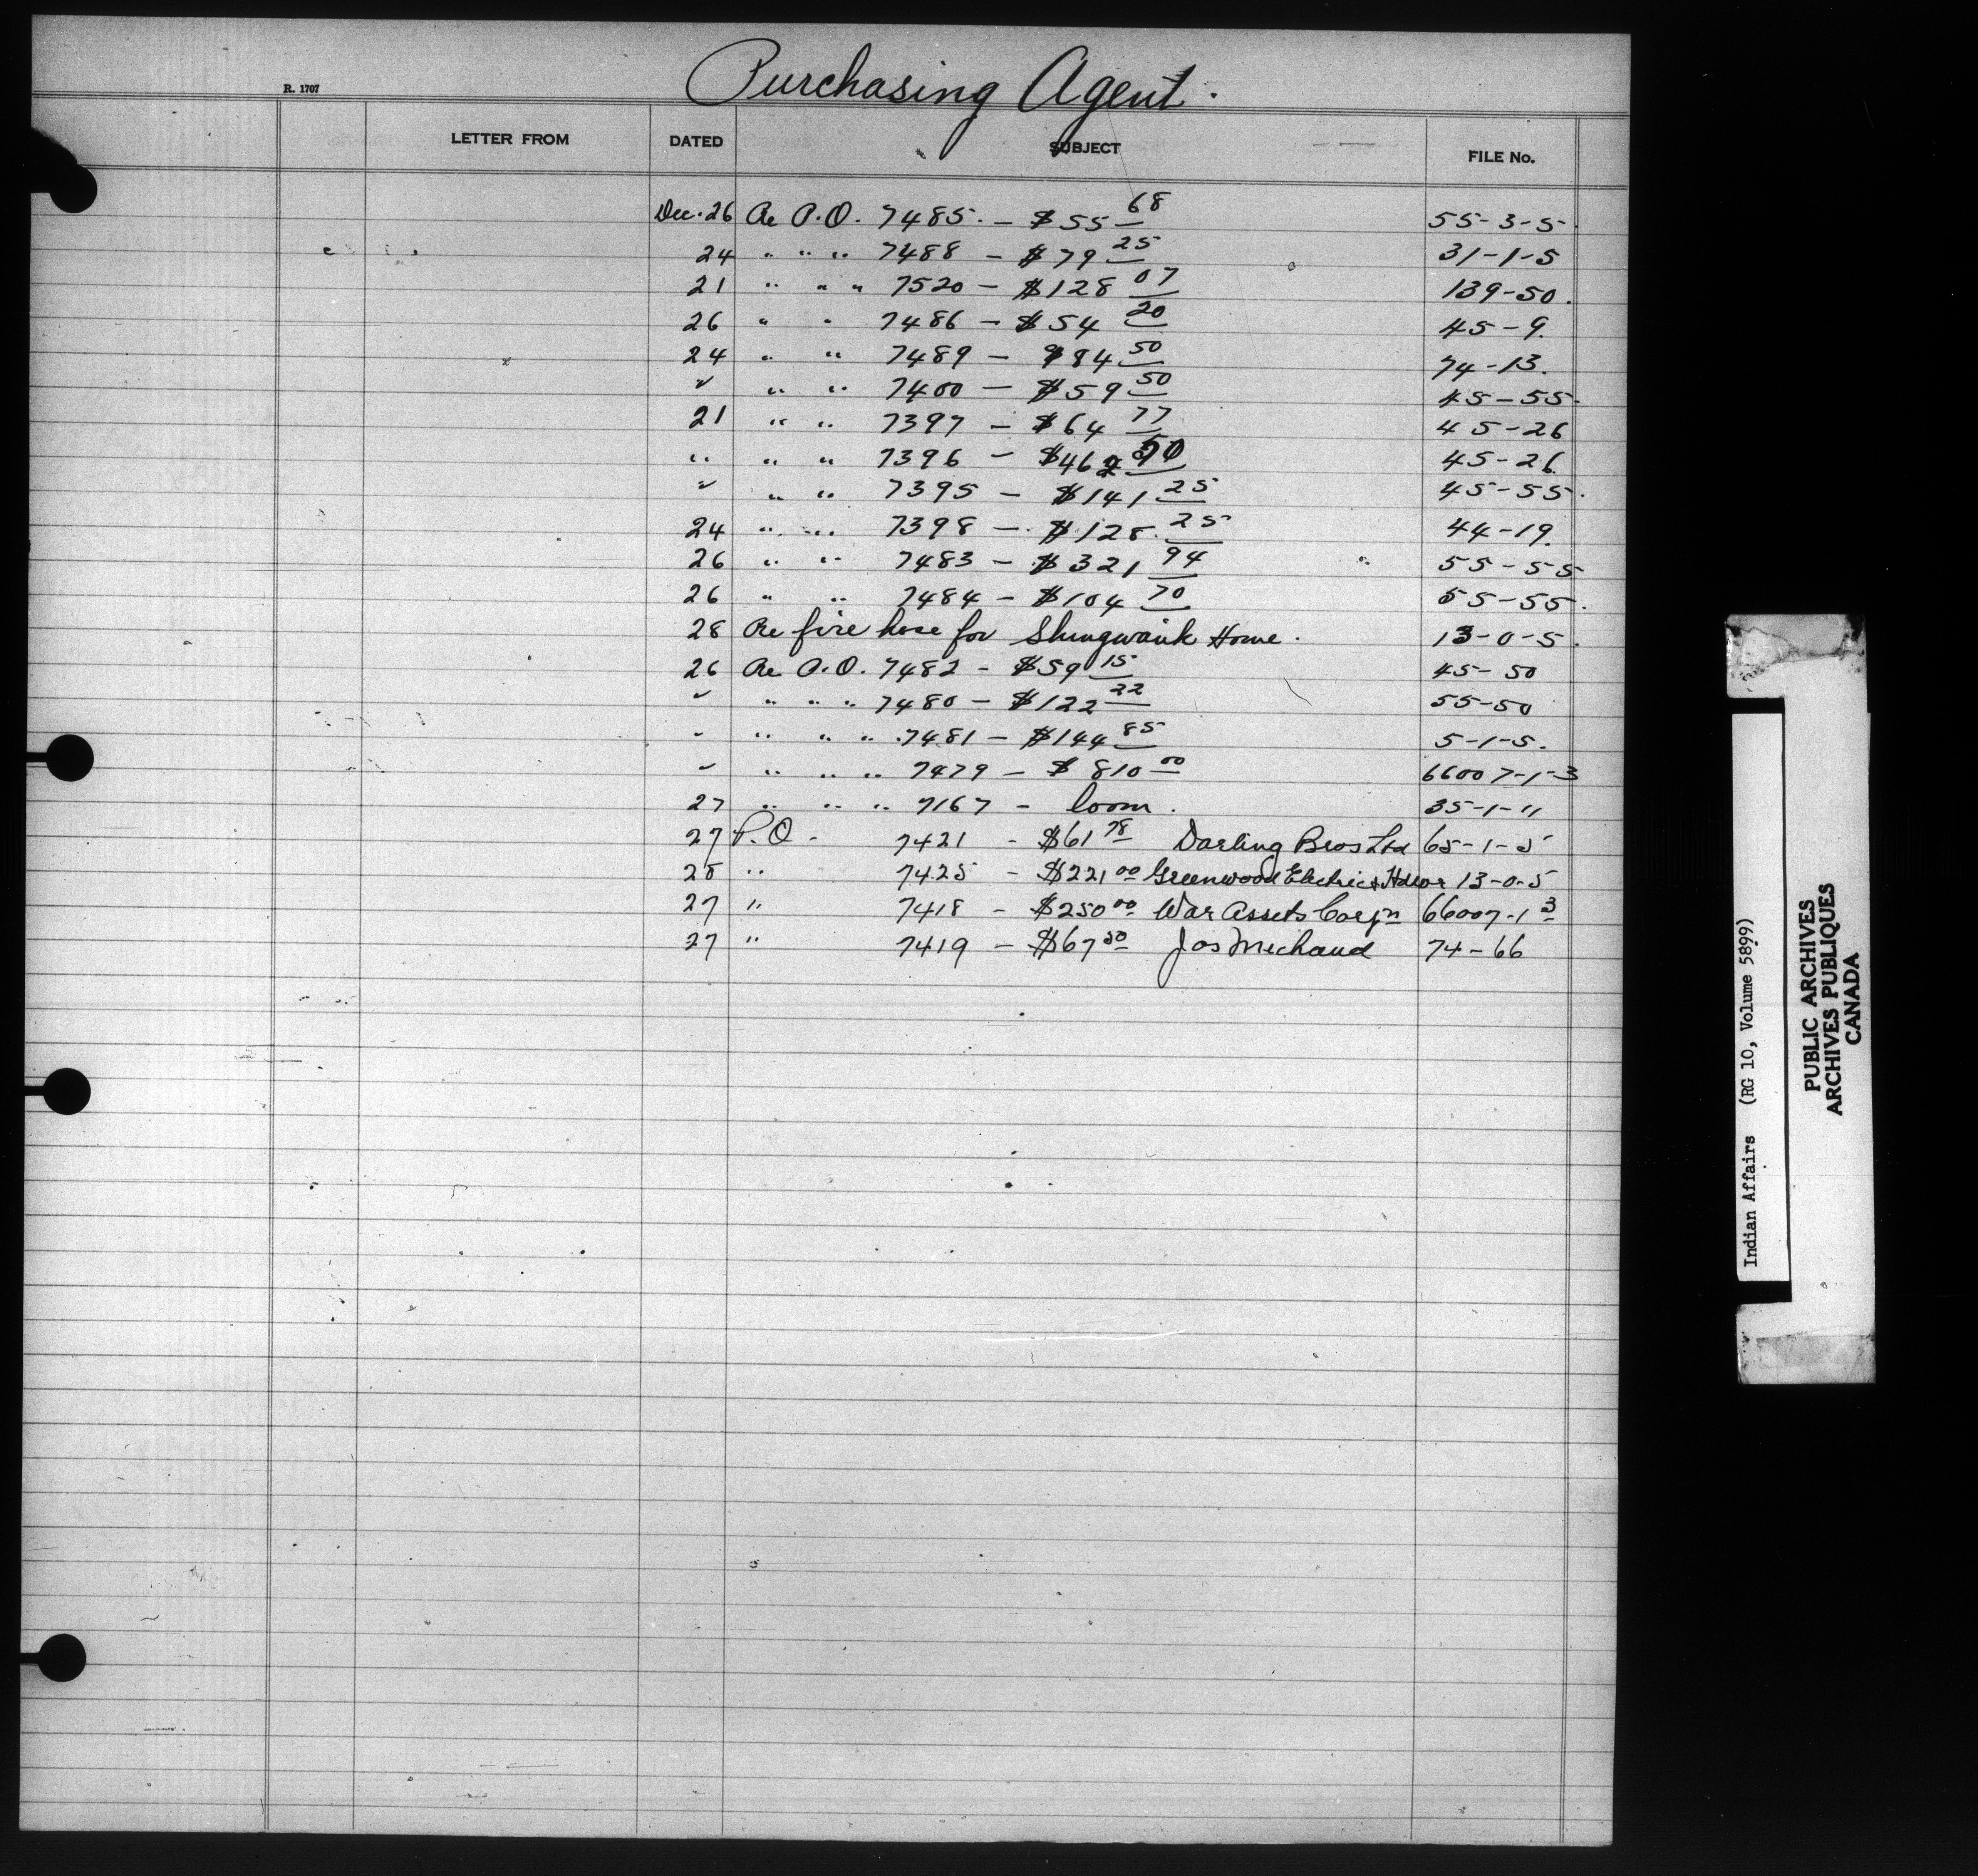 Purchasing Agent.
R. 1707
LETTER FROM DATED SUBJECT FILE No.
Dec. 26 Re P.O. 7485. — $55 68 55-3-5.
24 " " " 7488 — $79 25 31-1-5
21 " " " 7520 — $128 07 139-50.
26 " " 7486 — $54 20 45-9.
24 " " 7489 — $84 50 74-13.
" " " 7400 — $59 50 45-55.
21 " " 7397 — $64 77 45-26
" " " 7396 — $462 50 45-26.
" " " 7395 — $141 25 45-55.
24 " " 7398 — $128. 25 44-19.
26 " " 7483 — $321 94 55-55
26 " " 7484 — $104 70 55-55.
28 Re fire hose for Shingwauk Home. 13-0-5.
26 Re P.O. 7482 - $59 15 45-50
" " " " 7480 — $122 22 55-50
" " " " 7481 — $144 85 5-1-5.
" " " " 7479 — $810 00 66007-1-3
27 " " " 7167 - loom. 35-1-11
27 P.O - 7421 - $61 78 Darling Bros Ltd 65-1-5
28 " 7425 - $221 00 Greenwood Electric & 13-0-5
27 " 7418 - $250 00 War Assets Corpn 66007-1 3
27 " 7419 — $67 50 Jos Michaud 74-66
Indian Affairs (RG 10, Volume 5899)
PUBLIC ARCHIVES
ARCHIVES PUBLIQUES
CANADA